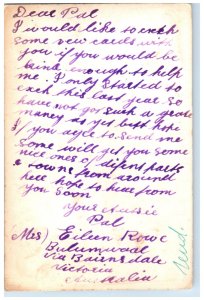 Dear Pal
I would like to exch
some view cards with
you if you would be
kind enough to help
me. I only started to
exch this last year so
have not got such a great
money as yet but hope
if you agree to send me
some will get you some
nice ones of difernt parts
& towns from around
here hope to hear from
you soon
Your Aussie
Pal
Mrs) Eileen Rowe
Bulumwaal
Via Bairnsdale
Victoria
Australia